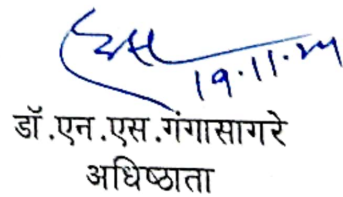 19.11.24
डॉ.एन.एस.गंगासागरे
अधिष्ठाता